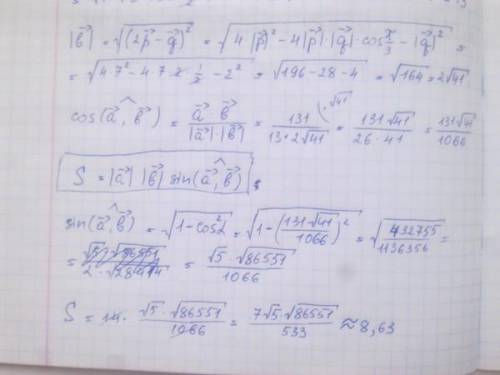 |b⃗| = √((2p⃗ - q⃗)²) = √(4|p⃗|² - 4|p⃗|·|q⃗|·cos π/3 - |q⃗|²) =
= √(4·7² - 4·7·2·1/2 - 2²) = √(196 - 28 - 4) = √164 = 2√41
cos(a⃗,^b⃗) = (a⃗·b⃗)/(|a⃗|·|b⃗|) = 131/(13·2√41) (·√41 = 131√41/(26·41) = 131√41/1066
S = |a⃗| |b⃗| sin(a⃗,^b⃗)
sin(a⃗,^b⃗) = √(1-cos²α) = √(1-(131·√41/1066)²) = √(432755/1136356) =
= (√5·√86551)/1066
S = 14 · (√5·√86551)/1066 = (7√5·√86551)/533 ≈ 8,63